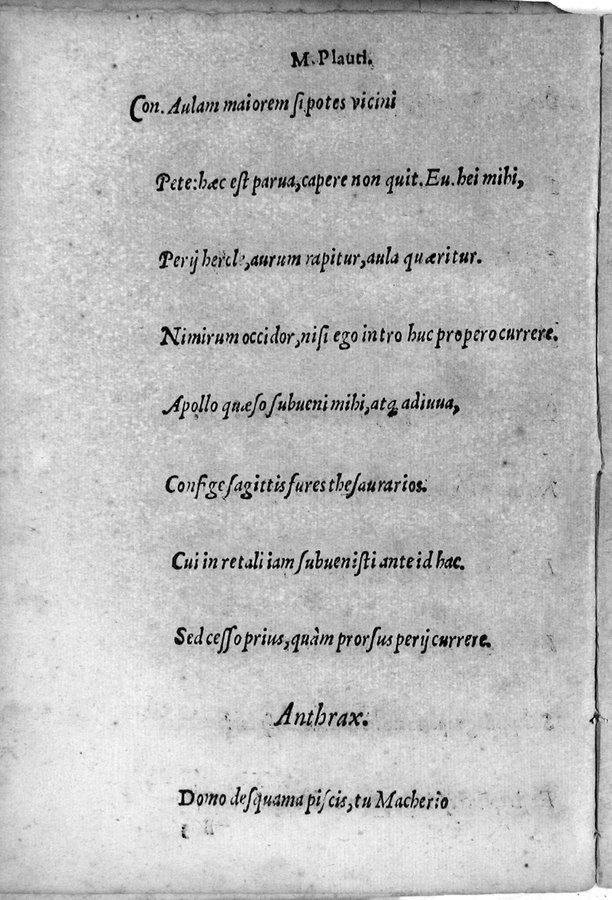 M. Plauti.
Con. Aulam maiorem si potes vicini
Pete: hæc est parua, capere non quit. Eu. hei mihi,
Perij hercle, aurum rapitur, aula quæritur.
Nimirum occidor, nisi ego intro huc propero currere.
Apollo quæso subueni mihi, atq; adiuua,
Confige sagittis fures thesaurarios.
Cui in re tali iam subuenisti ante id hac.
Sed cesso prius, quàm prorsus perij currere.
Anthrax.
Domo desquama piscis, tu Macherio